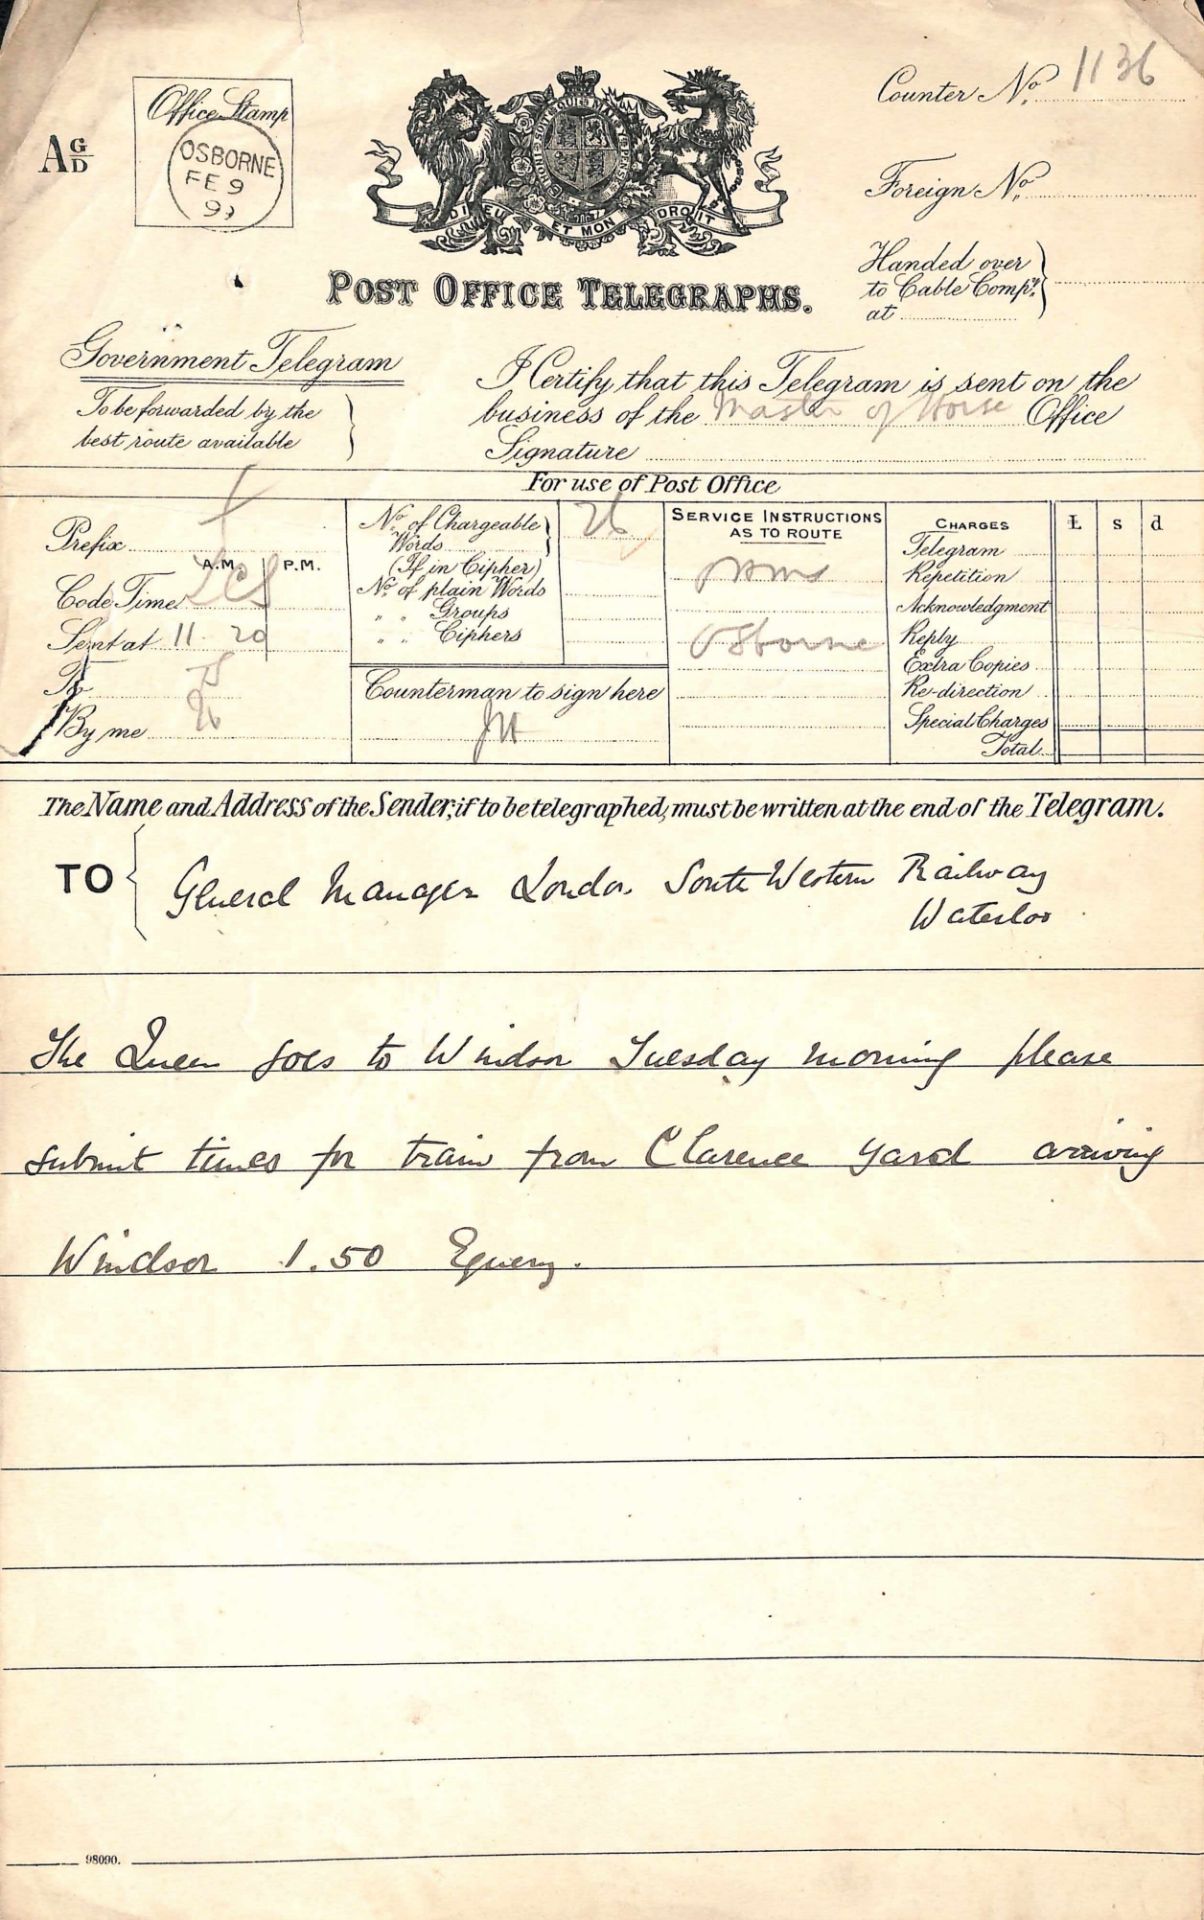 Counter No. 1136
Office Stamp
A G/D
OSBORNE
FE 9
Foreign No.
DIEU ET MON DROIT
Handed over
to Cable Compy.
at
POST OFFICE TELEGRAPHS.
Government Telegram
To be forwarded by the
best route available
I Certify that this Telegram is sent on the
business of the Master of Horse Office
Signature
For use of Post Office
Prefix
A.M. P.M.
Code Time
Sent at 11.20
To
By me
No. of Chargeable
Words 26
(If in Cipher)
No. of plain Words
" " Groups
" " Ciphers
Counterman to sign here
SERVICE INSTRUCTIONS
AS TO ROUTE
Osborne
CHARGES £ s d
Telegram
Repetition
Acknowledgment
Reply
Extra Copies
Re-direction
Special Charges
Total
The Name and Address of the Sender, if to be telegraphed, must be written at the end of the Telegram.
TO General Manager London South Western Railway
Waterloo
The Queen goes to Windsor Tuesday morning please
submit times for train from Clarence Yard arriving
Windsor 1.50 Equerry.
98090.